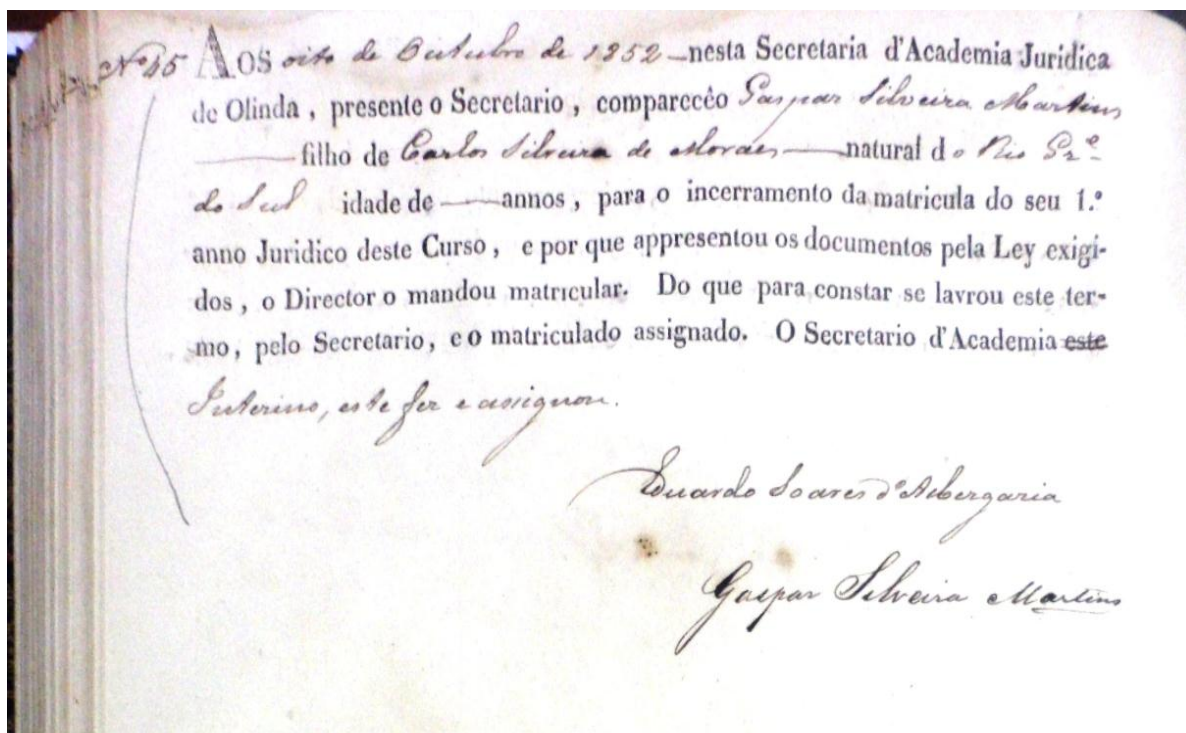 Nº 45 AOS oito de Outubro de 1852 — nesta Secretaria d'Academia Juridica
de Olinda , presente o Secretario , comparecêo Gaspar Silveira Martins
——— filho de Carlos Silveira de Moraes —— natural do Rio Gr.e
do Sul idade de —— annos , para o incerramento da matricula do seu 1.º
anno Juridico deste Curso , e por que appresentou os documentos pela Ley exigi-
dos , o Director o mandou matricular. Do que para constar se lavrou este ter-
mo, pelo Secretario, e o matriculado assignado. O Secretario d'Academia este
Interino, este fez e assignou.
Eduardo Soares d'Albergaria
Gaspar Silveira Martins